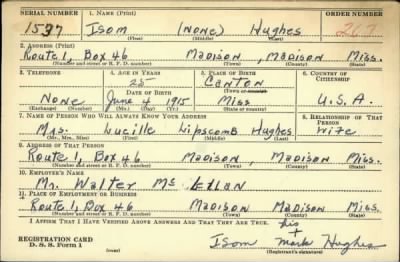 SERIAL NUMBER 1. NAME (Print) ORDER NUMBER
1537 Isom (None) Hughes 267
(First) (Middle) (Last)
2. ADDRESS (Print)
Route 1, Box 46 Madison, Madison Miss.
(Number and street or R. F. D. number) (Town) (County) (State)
3. TELEPHONE 4. AGE IN YEARS 5. PLACE OF BIRTH 6. COUNTRY OF CITIZENSHIP
25 Canton
DATE OF BIRTH (Town or county)
None June 4 1915 Miss U.S.A.
(Exchange) (Number) (Mo.) (Day) (Yr.) (State or country)
7. NAME OF PERSON WHO WILL ALWAYS KNOW YOUR ADDRESS 8. RELATIONSHIP OF THAT PERSON
Mrs. Lucille Lipscomb Hughes Wife
(Mr., Mrs., Miss) (First) (Middle) (Last)
9. ADDRESS OF THAT PERSON
Route 1, Box 46 Madison, Madison Miss.
(Number and street or R. F. D. number) (Town) (County) (State)
10. EMPLOYER'S NAME
Mr. Walter Mc
11. PLACE OF EMPLOYMENT OR BUSINESS
Route 1, Box 46 Madison Madison Miss.
(Number and street or R. F. D. number) (Town) (County) (State)
I AFFIRM THAT I HAVE VERIFIED ABOVE ANSWERS AND THAT THEY ARE TRUE.
REGISTRATION CARD his
D. S. S. Form 1 (over) Isom x Mark Hughes